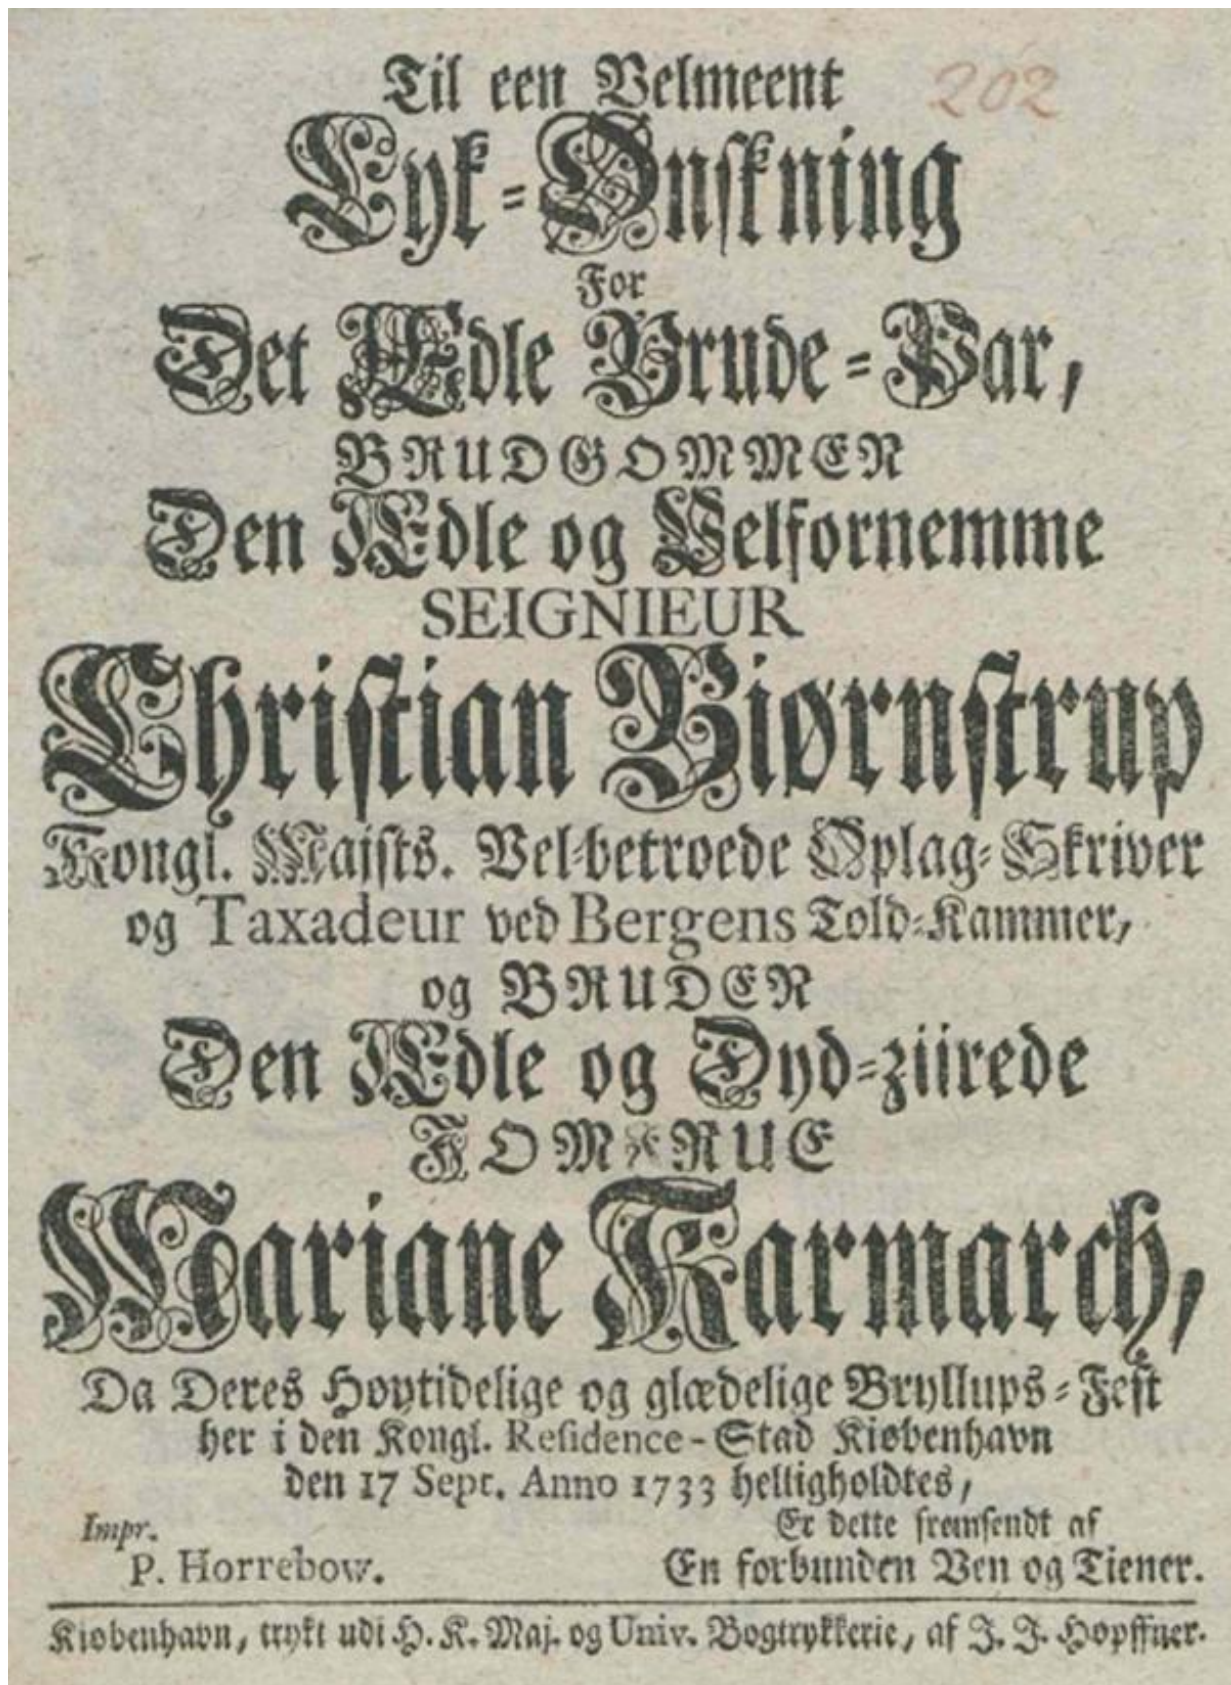 Til een Velmeent
202
Lyk-Ønskning
For
Det Ædle Brude-Par,
BRUDGOMMEN
Den Ædle og Velfornemme
SEIGNIEUR
Christian Biørnstrup
Kongl. Majsts. Vel-betroede Oplag-Skriver
og Taxadeur ved Bergens Told-Kammer,
og BRUDEN
Den Ædle og Dyd-ziirede
JOMFRUE
Mariane Karmarch,
Da Deres Høytidelige og glædelige Bryllups-Fest
her i den Kongl. Residence-Stad Kiøbenhavn
den 17 Sept. Anno 1733 helligholdtes,
Impr.
P. Horrebow.
Er dette fremsendt af
En forbunden Ven og Tiener.
Kiøbenhavn, trykt udi H. K. Maj. og Univ. Bogtrykkerie, af J. J. Høpffner.